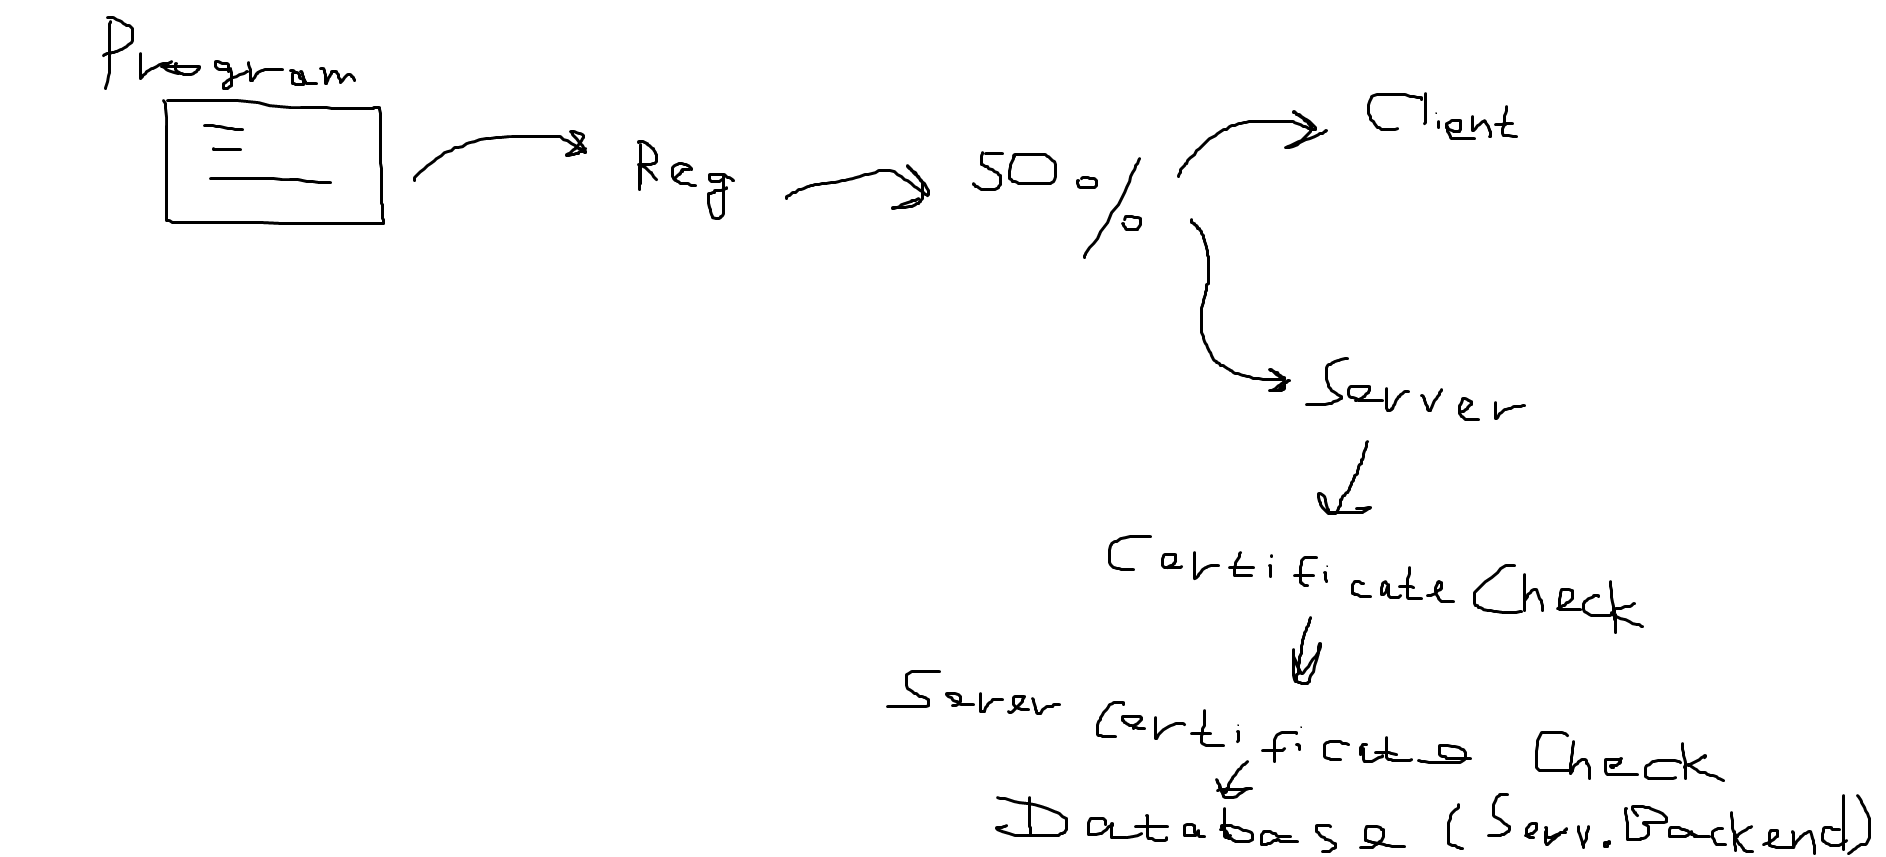 Program
Reg
50%
Client
Server
Certificate Check
Serer Certificate Check
Database (Serv.Backend)